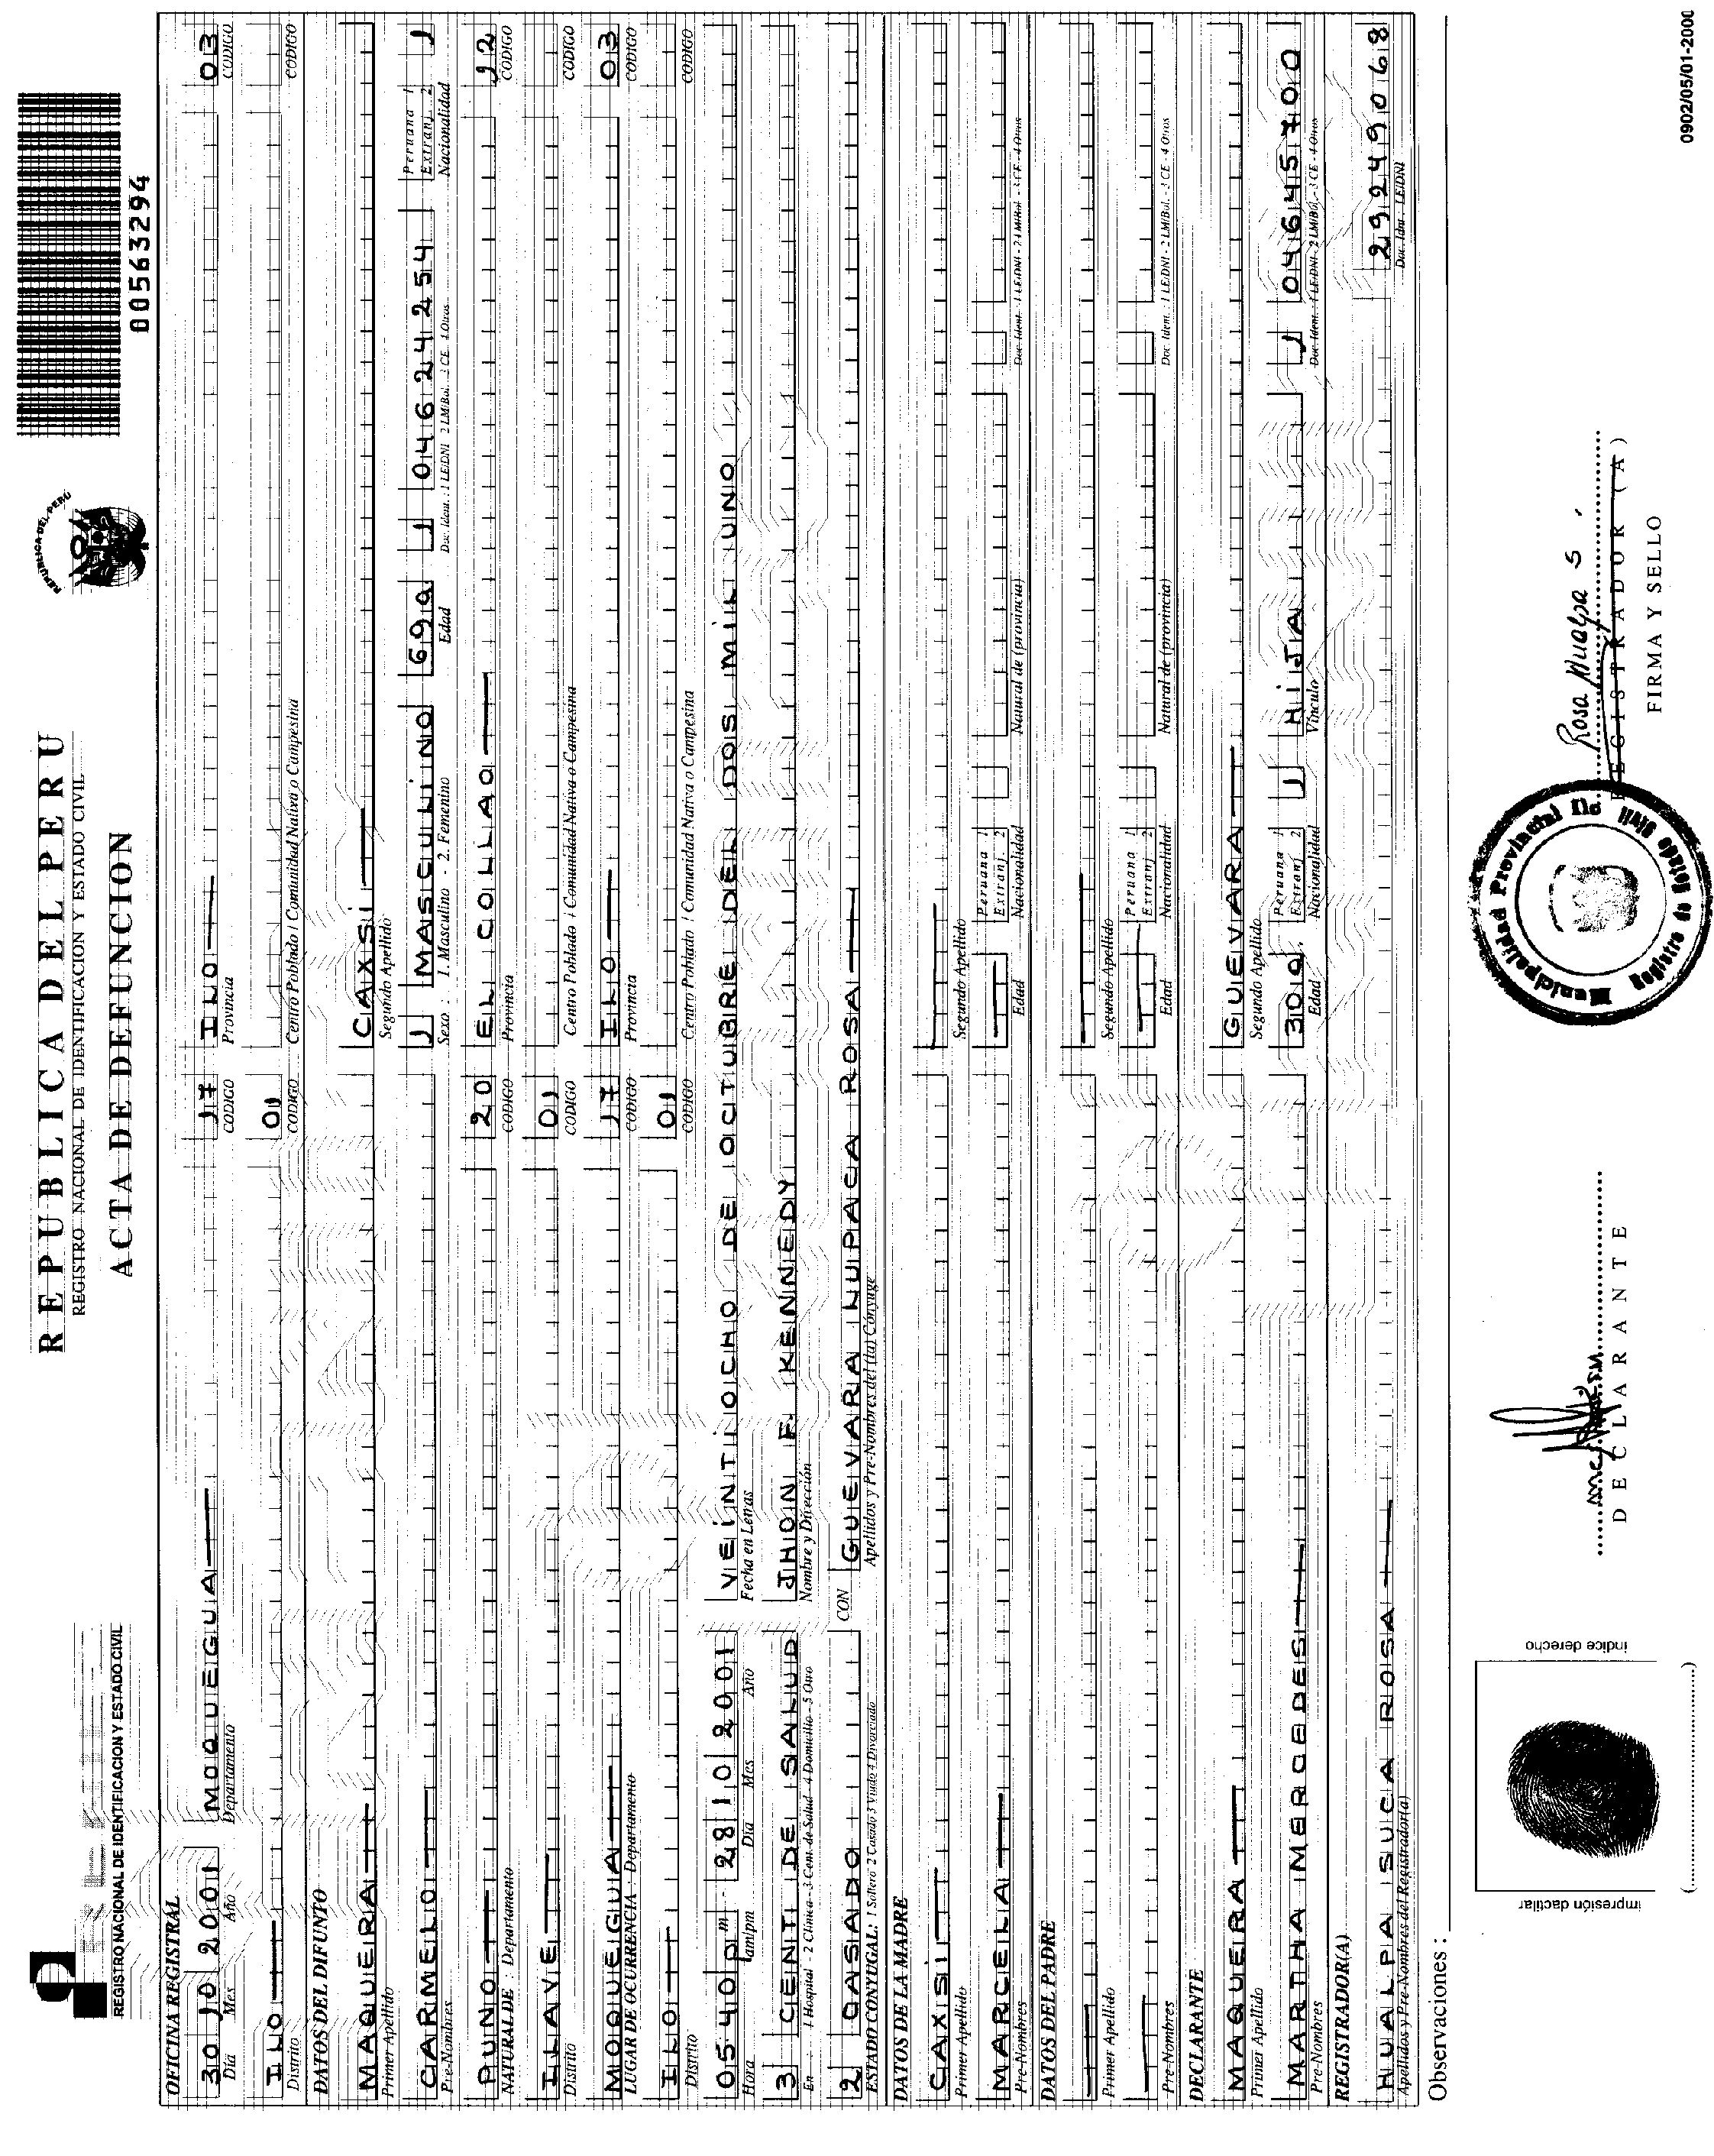 REPUBLICA DEL PERU
REGISTRO NACIONAL DE IDENTIFICACION Y ESTADO CIVIL
ACTA DE DEFUNCION
REGISTRO NACIONAL DE IDENTIFICACION Y ESTADO CIVIL
REPUBLICA DEL PERÚ
00563294
OFICINA REGISTRAL
30 10 2001 MOQUEGUA 17 ILO 03
Día Mes Año Departamento CODIGO Provincia CODIGO
ILO 01
Distrito CODIGO Centro Poblado / Comunidad Nativa o Campesina CODIGO
DATOS DEL DIFUNTO
MAQUERA CAXSi
Primer Apellido Segundo Apellido
CARMELO 1 MASCULiNO 69a 1 04624254 Peruana 1 Extranj. 2 1
Pre-Nombres Sexo : 1. Masculino - 2. Femenino Edad Doc. Ident. : 1 LE/DNI 2 LM/Bol. 3 CE 4 Otros Nacionalidad
PUNO 20 EL COLLAO 12
NATURAL DE : Departamento CODIGO Provincia CODIGO
ILAVE 01
Distrito CODIGO Centro Poblado / Comunidad Nativa o Campesina CODIGO
MOQUEGUA 17 ILO 03
LUGAR DE OCURRENCIA : Departamento CODIGO Provincia CODIGO
ILO 01
Distrito CODIGO Centro Poblado / Comunidad Nativa o Campesina CODIGO
05 40 pm 28 10 2001 VEiNTiOCHO DE OCTUBRE DEL DOS MiL UNO
Hora am/pm Día Mes Año Fecha en Letras
3 CENT DE SALUD JHON F KENNEDY
En : 1 Hospital 2 Clínica 3 Cent. de Salud 4 Domicilio 5 Otro Nombre y Dirección
2 CASADO CON GUEVARA LUPACA ROSA
ESTADO CONYUGAL: 1 Soltero 2 Casado 3 Viudo 4 Divorciado Apellidos y Pre-Nombres del (la) Cónyuge
DATOS DE LA MADRE
CAXSi
Primer Apellido Segundo Apellido
MARCELA Peruana 1 Extranj. 2
Pre-Nombres Edad Nacionalidad Natural de (provincia) Doc. Ident. : 1 LE/DNI - 2 LM/Bol. - 3 CE - 4 Otros
DATOS DEL PADRE
Primer Apellido Segundo Apellido
Peruana 1 Extranj. 2
Pre-Nombres Edad Nacionalidad Natural de (provincia) Doc. Ident. : 1 LE/DNI - 2 LM/Bol. - 3 CE - 4 Otros
DECLARANTE
MAQUERA GUEVARA
Primer Apellido Segundo Apellido
MARTHA MERCEDES 30a. Peruana 1 Extranj. 2 1 HiJA 1 04645700
Pre-Nombres Edad Nacionalidad Vínculo Doc. Ident. : 1 LE/DNI - 2 LM/Bol. - 3 CE - 4 Otros
REGISTRADOR(A)
HUALPA SUCA ROSA 29249068
Apellidos y Pre-Nombres del Registrador(a) Doc. Iden. : LE/DNI
Observaciones :
impresión dactilar
indice derecho
DECLARANTE
Municipalidad Provincial Ilo
Registro de Estado Civil
Rosa Hualpa S.
REGISTRADOR (A)
FIRMA Y SELLO
0902/05/01-2000